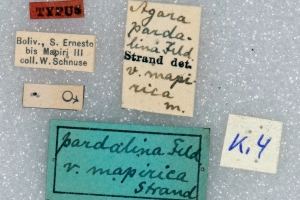 TYPUS
Boliv., S. Ernesto
bis Mapiri III
coll. W. Schnuse
♂
Agara
parda-
lina Feld
Strand det.
v. mapi-
rica
m.
pardalina Feld
v. mapirica
Strand
K.4